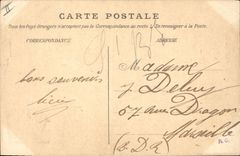 CARTE POSTALE
Tous les Pays étrangers n'acceptent pas la Correspondance au recto (Se renseigner à la Poste).
CORRESPONDANCE
ADRESSE
Madame
J Deluy
bons souvenirs
57 rue Dragon
Marseille
(B. D. R)